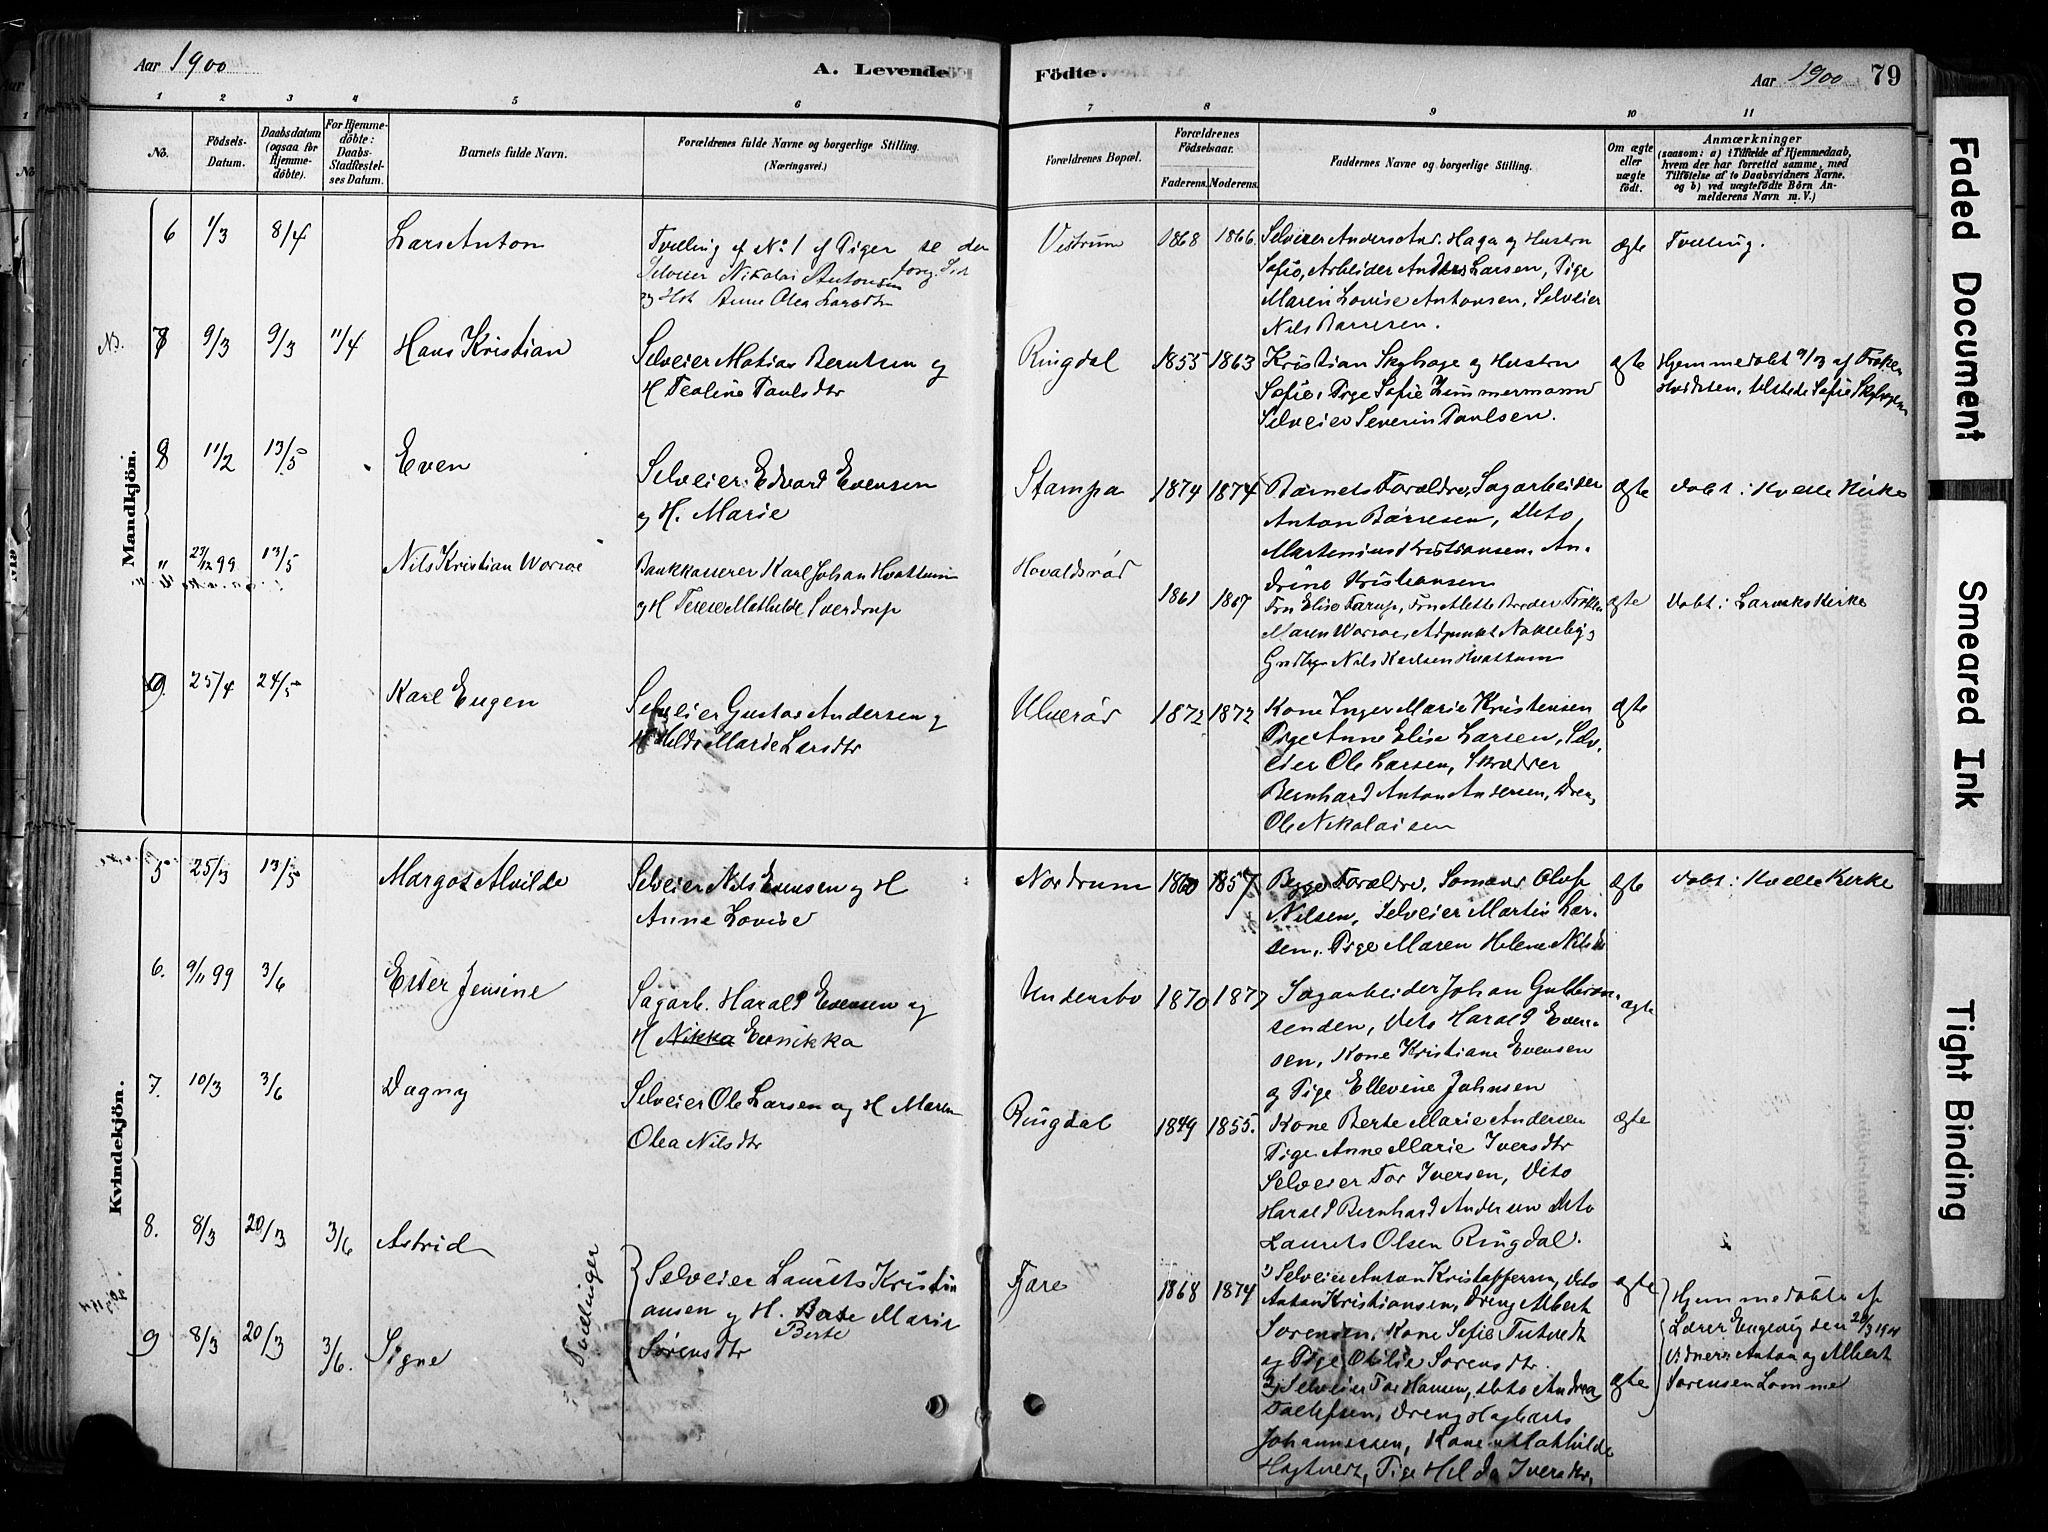 Aar 1900
A. Levende
Födte.
Aar 1900
79
1 2 3 4 5 6 7 8 9 10 11
No.
Födsels-Datum.
Daabsdatum (ogsaa for Hjemme-döbte).
For Hjemme-döbte: Daabs-Stadfæstel-ses Datum.
Barnets fulde Navn.
Forældrenes fulde Navne og borgerlige Stilling.
(Næringsvei.)
Forældrenes Bopæl.
Forældrenes Födselsaar.
Faderens. Moderens.
Faddernes Navne og borgerlige Stilling.
Om ægte eller uægte födt.
Anmærkninger
(saasom: a) i Tilfælde af Hjemmedaab,
hvem der har forrettet samme, med
Tilföielse af to Daabsvidners Navne.
og b) ved uægtefödte Börn An-
melderens Navn m. V.)
Mandkjön.
6 1/3 8/4 Lars Anton
Tvilling af No 1 af Piger se den
forrg. Sid
Selveier Nikolai Antonsen
og Hst Anne Olea Larsdtr
Vestrum 1868 1866.
Selveier Anders And. Haga og Hustru
Sofie, Arbeider Anders Larsen, Pige
Maren Lovise Antonsen, Selveier
Nils Børresen.
ægte Tvilling.
NB. 7 9/3 9/3 11/4 Hans Kristian
Selveier Matias Berntsen og
H Teoline Paulsdtr
Ringdal 1855 1863
Kristian Skyhage og Hustru
Sofie, Pige Sofie Zimmermann
Selveier Severin Paulsen.
ægte
Hjemmedøbt 9/3 af Frøken
tilstede Sofie
8 11/2 13/5 Even
Selveier Edvard Evensen
og H. Marie
Stampa 1874 1874
Barnets Forældre, Sagarbeider
Anton Børresen, Dito
Martinius Kristiansen, An-
drine Kristiansen
ægte Døbt i Kvelle Kirke
" 27/12 99 13/5 Nils Kristian Worsøe
Bankkasserer Karl Johan Hvattum
og H Terese Mathilde Sverdrup
Hovaldsrød 1861 1867
Fru Elise Farup, Fru Alette Frøken
Maren Worsøe, Adjunkt
Nils Karlsen Hvattum
ægte Døbt i Larviks Kirke
9. 25/4 24/5 Karl Eugen
Selveier Gustav Andersen og
H Hilda Marie Larsdtr
Ulverød 1872 1872
Kone Inger Marie Kristensen
Pige Anne Elise Larsen, Selv-
eier Ole Larsen, Skrædder
Bernhard Anton Andersen, Dreng
Ole Nikolaisen
ægte
Kvindekjön.
5 25/3 13/5 Margot Alvilde
Selveier Nils Evensen og H
Anne Lovise
Nordrum 1860 1857
Begge Forældre, Sømand Oluf
Nilsen, Selveier Martin Lar-
sen, Pige Maren Helene
ægte Døbt i Kvelle Kirke
6. 9/11 99 3/6 Ester Jensine
Sagarb. Harald Evensen og
H Nikka Evnikka
Undersbo 1870 1877
Sagarbeider Johan
Dito Harald Even-
sen, Kone Kristiane Evensen
og Pige Ellevine Johnsen
ægte
7. 10/3 3/6 Dagny
Selveier Ole Larsen og H Maren
Olea Nilsdtr
Ringdal 1849 1855.
Kone Berte Marie Andersen
Pige Anne Marie Iversdtr
Selveier Tor Iversen, Dito
Harald Bernhard Andersen Dito
Laurits Olsen Ringdal.
ægte
8. 8/3 20/3 3/6 Astrid
Tvillinger
Selveier Laurits Kristi-
ansen og H. Berte Marie
Berte
Sørensdtr
Fjære 1868 1874
1) Selveier Anton Kristoffersen, Dito
Anton Kristiansen, Dreng Albert
Sørensen, Kone Sofie Tutvedt
og Pige Otilie Sørensdtr.
ægte
Hjemmedøbte af
Lærer Engevig den 20/3 1900
Vidner: Anton og Albert
Sørensen Lomme
9 8/3 20/3 3/6. Signe
2) Selveier Tor Hansen, Dito Andrea
Tollefsen, Dreng
Johannessen, Kone Mathilde
Hagtvedt, Pige Hilda Iversdtr.
ægte
Faded Document
Smeared Ink
Tight Binding